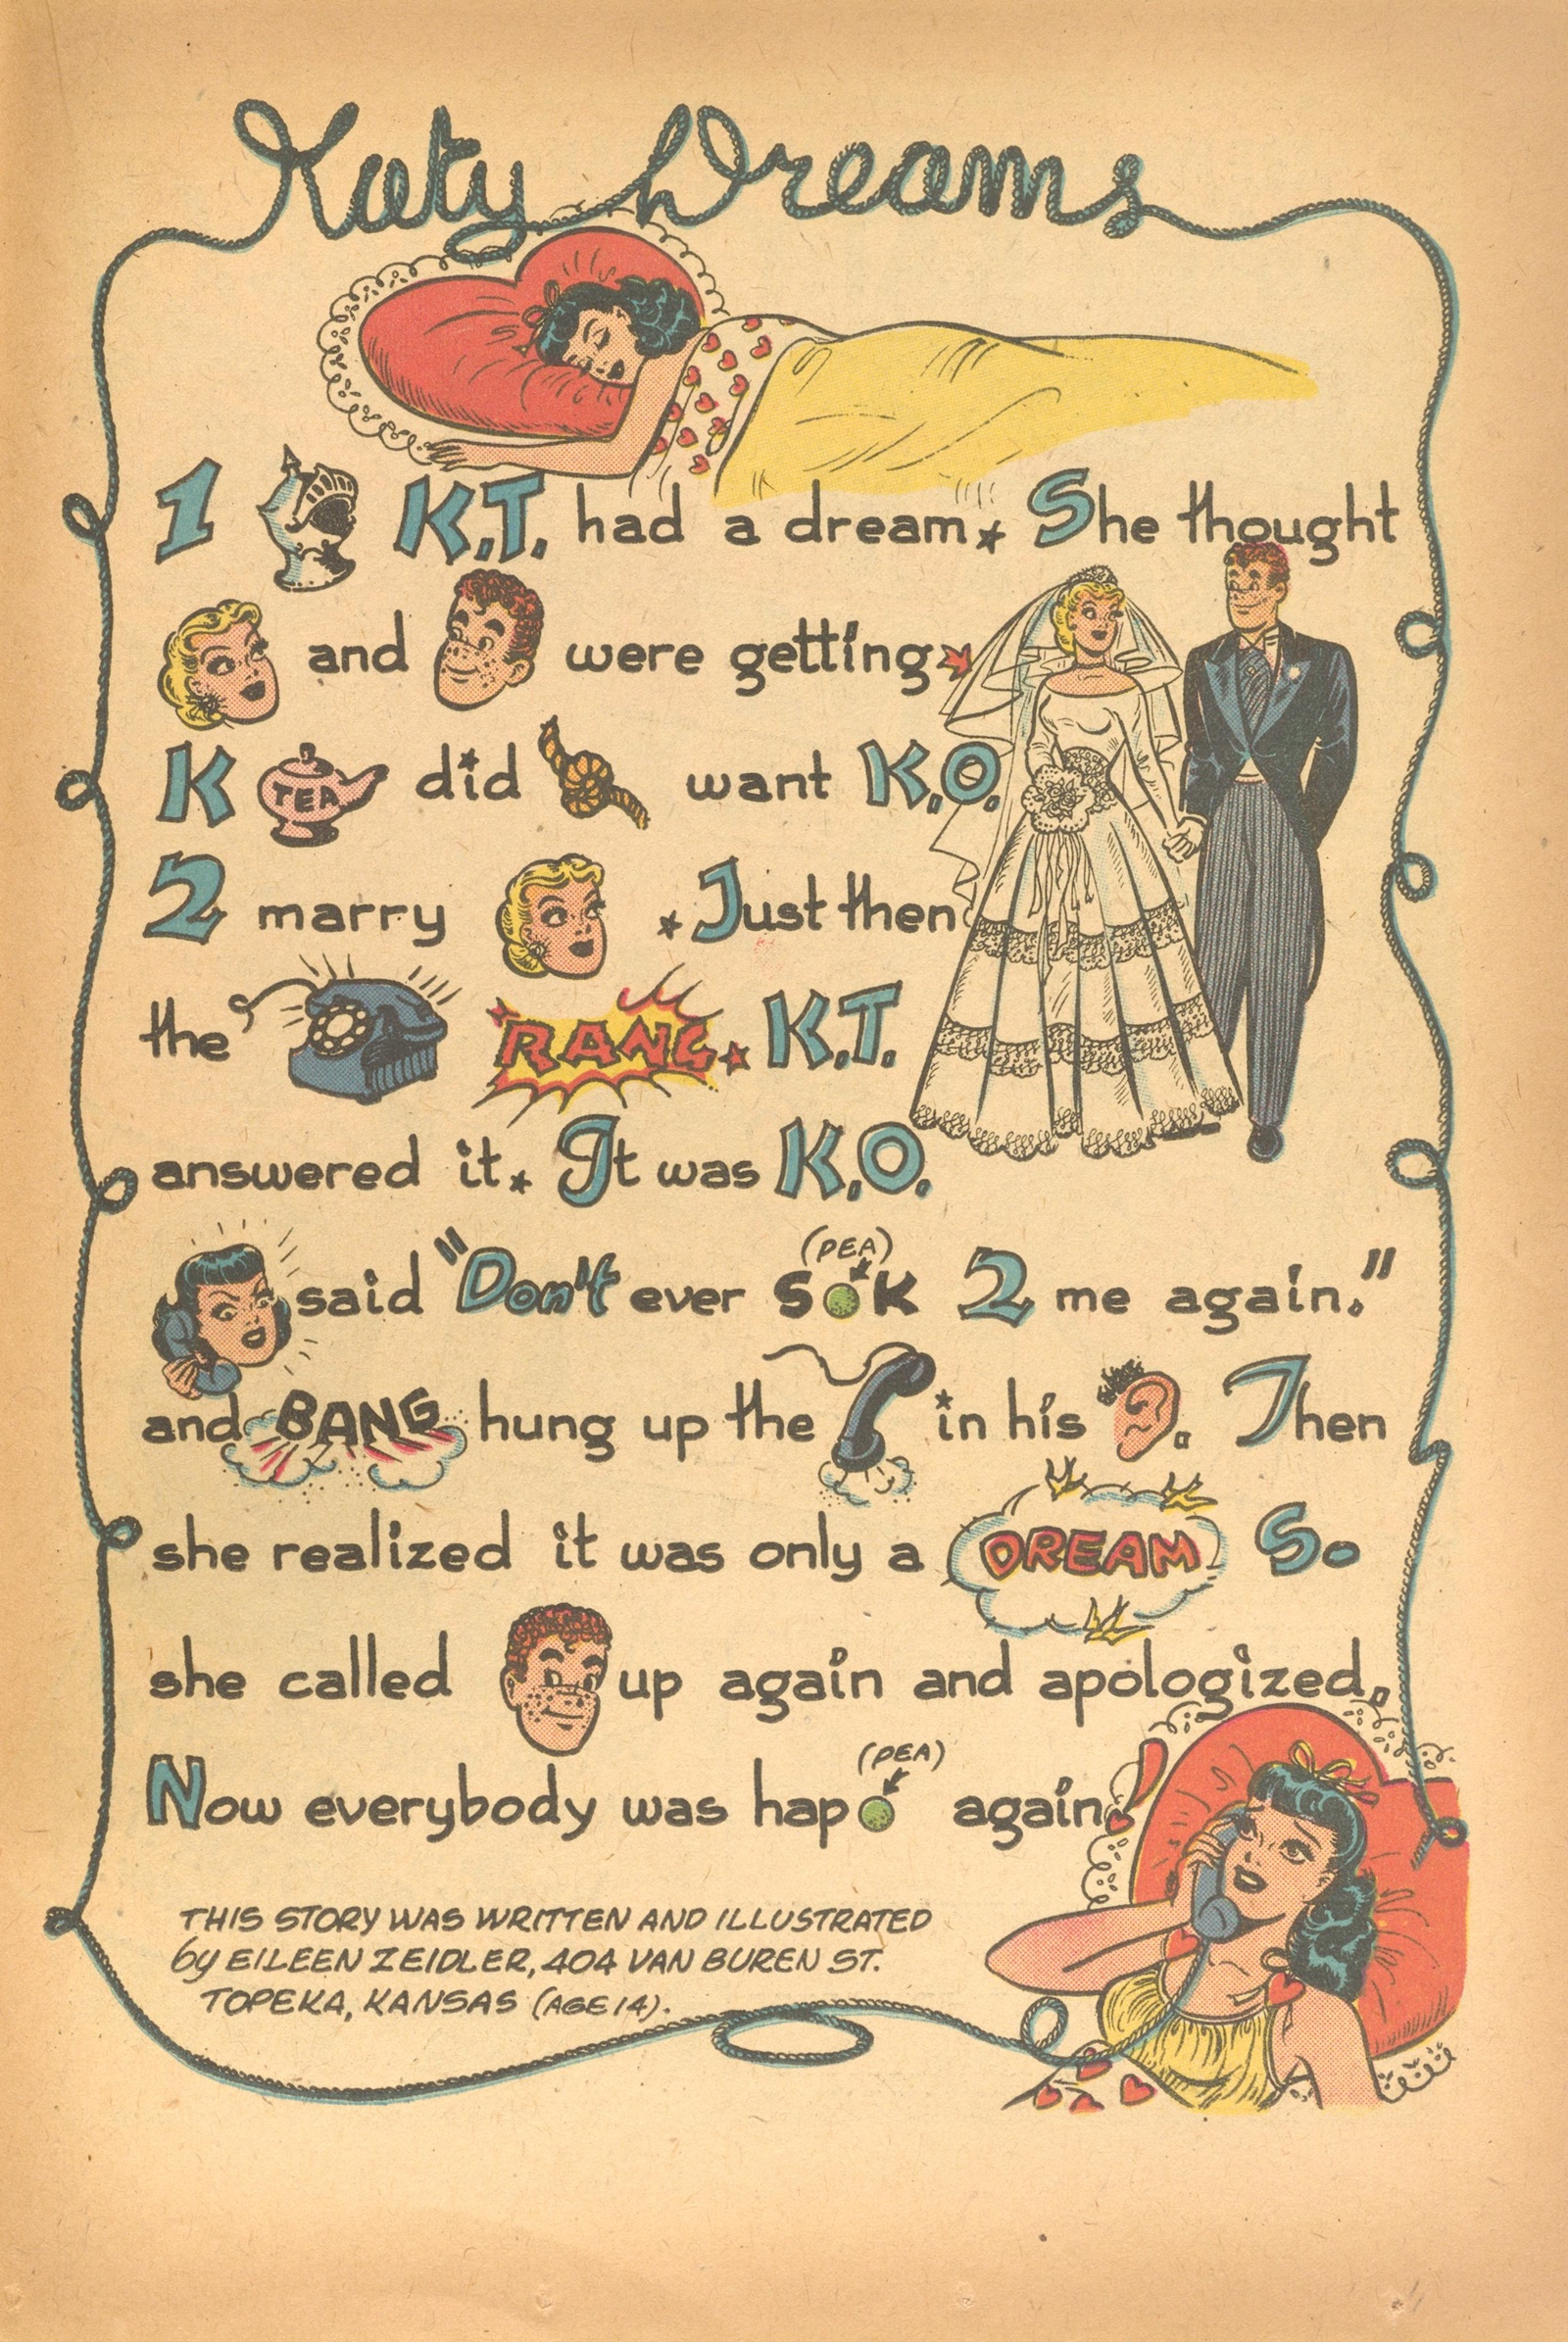 Katy Dreams
1 K.T. had a dream. She thought
and were getting
K TEA did want K.O.
2 marry . Just then
the RANG. K.T.
answered it. It was K.O.
(PEA)
said "Don't ever S K 2 me again."
and BANG hung up the in his . Then
she realized it was only a DREAM So
she called up again and apologized.
(PEA)
Now everybody was hap again!
THIS STORY WAS WRITTEN AND ILLUSTRATED
by EILEEN ZEIDLER, 404 VAN BUREN ST.
TOPEKA, KANSAS (AGE 14).